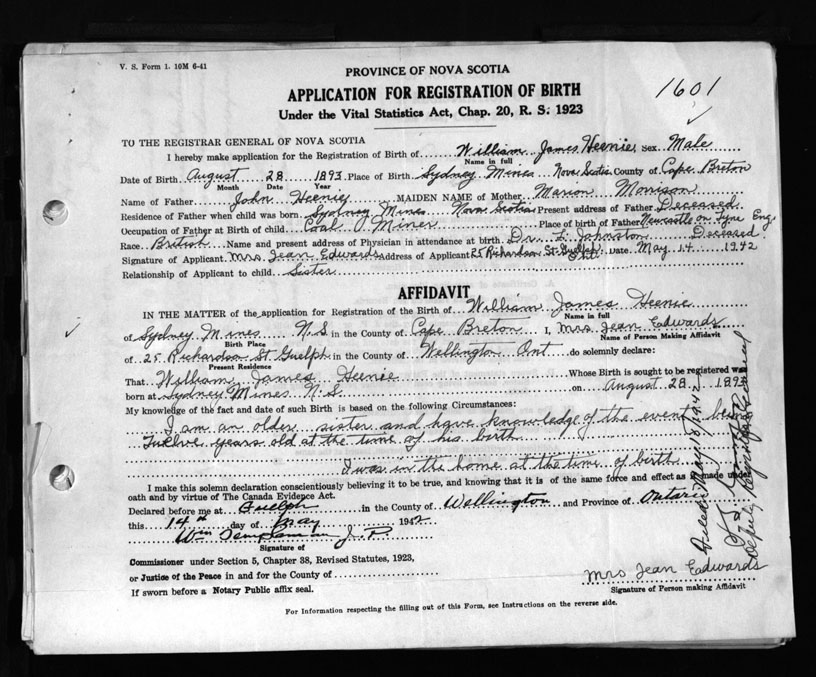 V. S. Form 1. 10M 6-41
PROVINCE OF NOVA SCOTIA
1601
APPLICATION FOR REGISTRATION OF BIRTH
Under the Vital Statistics Act, Chap. 20, R. S. 1923
TO THE REGISTRAR GENERAL OF NOVA SCOTIA
I hereby make application for the Registration of Birth of William James Heenie Sex Male
Name in full
Date of Birth August 28 1893 Place of Birth Sydney Mines Nova Scotia County of Cape Breton
Month Date Year
Name of Father John Heenie MAIDEN NAME of Mother Marion Morrison
Residence of Father when child was born Sydney Mines Nova Scotia Present address of Father Deceased
Occupation of Father at Birth of child Coal Miner Place of birth of Father Newcastle on Tyne Eng.
Race British Name and present address of Physician in attendance at birth Dr. L. Johnston Deceased
Signature of Applicant Mrs Jean Edwards Address of Applicant 25 Richardson St. Guelph Ont Date May 14 1942
Relationship of Applicant to child Sister
AFFIDAVIT
IN THE MATTER of the application for Registration of the Birth of William James Heenie
Name in full
of Sydney Mines N.S. in the County of Cape Breton I, Mrs Jean Edwards
Birth Place Name of Person Making Affidavit
of 25 Richardson St Guelph in the County of Wellington Ont do solemnly declare:
Present Residence
That William James Heenie Whose Birth is sought to be registered was
born at Sydney Mines N.S. on August 28 1893
My knowledge of the fact and date of such Birth is based on the following Circumstances:
I am an older sister and have knowledge of the event being
Twelve years old at the time of his birth
I was in the home at the time of birth
I make this solemn declaration conscientiously believing it to be true, and knowing that it is of the same force and effect as if made under
oath and by virtue of The Canada Evidence Act.
Declared before me at Guelph in the County of Wellington and Province of Ontario
this 14th day of May 1942
Wm J. P.
Signature of
Commissioner under Section 5, Chapter 38, Revised Statutes, 1923,
or Justice of the Peace in and for the County of
If sworn before a Notary Public affix seal.
Mrs Jean Edwards
Signature of Person making Affidavit
For Information respecting the filling out of this Form, see Instructions on the reverse side.
May 18/1942
Deputy Registrar General